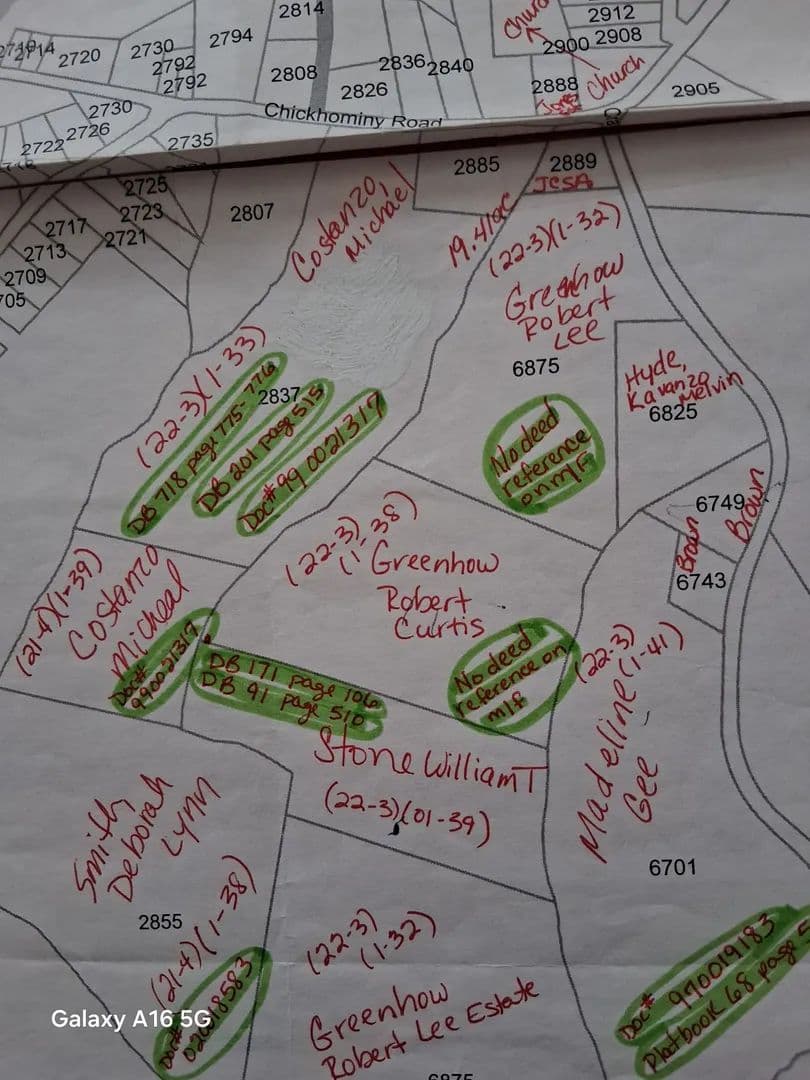 2814
2912
Church
2794
2908
2714
2720
2730
2900
2792
2836
2840
2792
2808
2826
2888
Church
2905
2730
Chickhominy Road
2726
2722
2735
2885
2889
JCSA
2725
2807
Costanzo,
Michael
2723
2717
2721
2713
2709
705
19.41ac
(22-3)(1-32)
Greenhow
Robert
Lee
6875
Hyde,
Kavanzo
Melvin
6825
(22-3)(1-33)
2837
DB 718 page 775-776
DB 201 page 515
Doc# 99 0021317
No deed
reference
on m/f
6749
Brown
Brown
6743
(22-3)
(1-38)
Greenhow
Robert
Curtis
(21-4)(1-39)
Costanzo
Micheal
Doc#
990021317
DB 171 page 106
DB 91 page 510
No deed
reference on
m/f
(22-3)
(1-41)
Madeline
Gee
Stone William T
(22-3)(01-39)
Smith
Deborah
Lynn
2855
(21-4)(1-38)
Doc#
020018583
6701
(22-3)
(1-32)
Greenhow
Robert Lee Estate
6875
Doc# 990019183
Platbook 68 page 5
Galaxy A16 5G